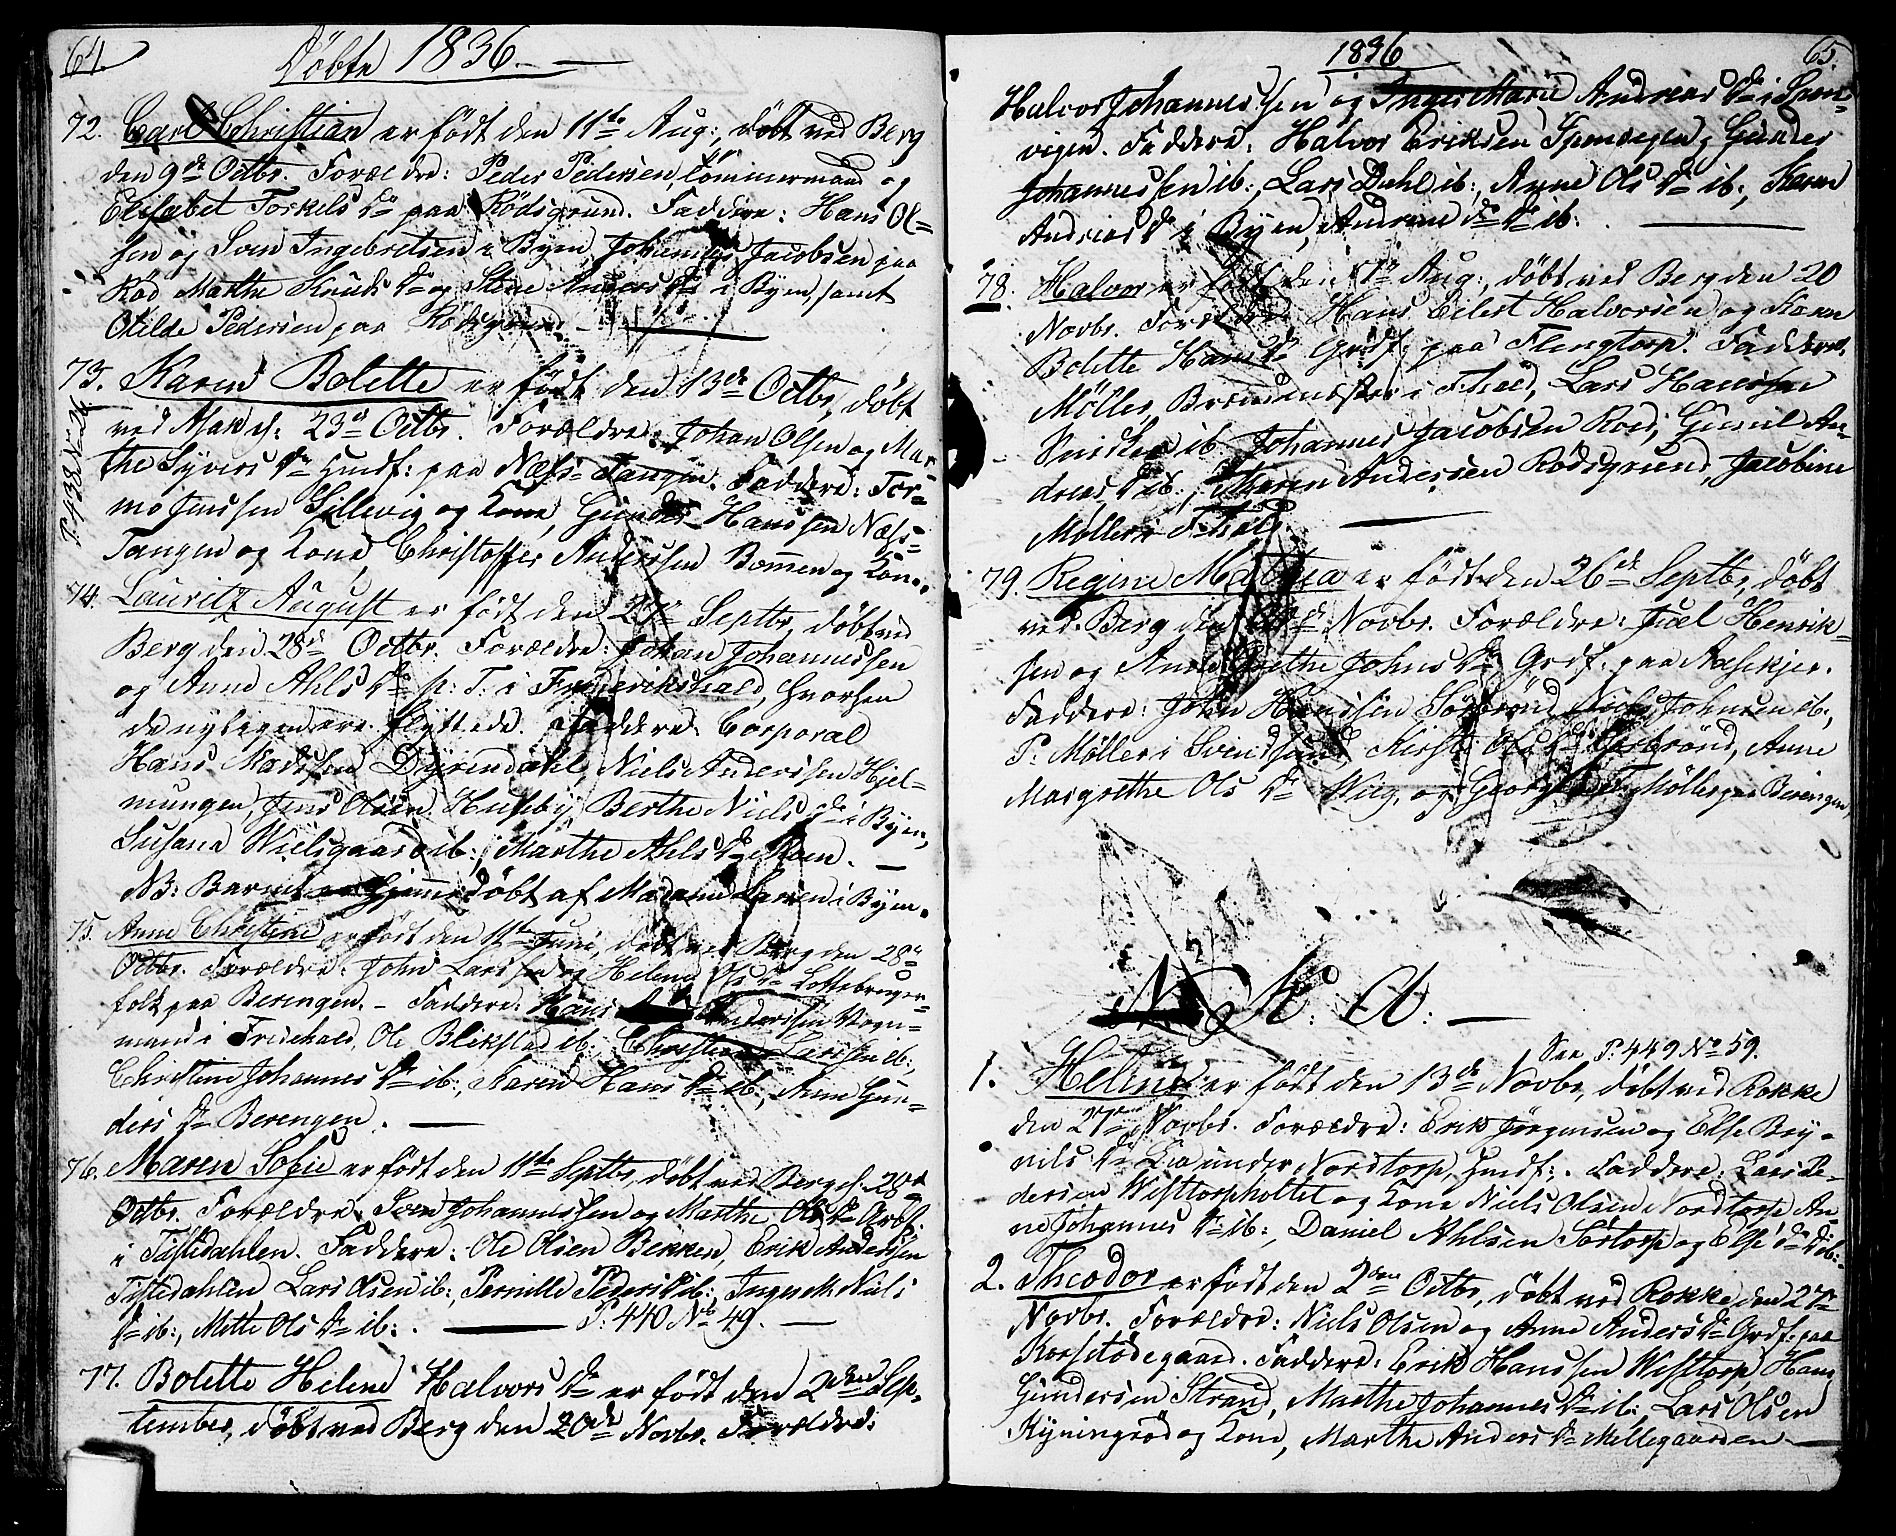 64.
Döbte 1836.
72. Carl Christian er født den 11te Aug:, døbt ved Berg
den 9de Octbr. Forældre: Peder Pedersen, Tömmermand og
Elisabet Torkels Dr paa Rödsgrund. Faddere: Hans Ol-
sen og Sven Ingebretsen i Byen, Johannes Jacobsen paa
Röd Marthe Knuds Dr og Stine Anders Dr i Byen, samt
Otilde Pedersen paa Rödsgrund.
73. Karen Bolette er født den 13de Octbr, døbt
ved Asak d: 23d Octbr. Forældre: Johan Olsen og Mar-
the Syvers Dr Husf: paa Næs-Tangen. Faddere: Tor-
mo Jenssen Gillevig og Kone, Gunder Hanssen Næs-
Tangen og Kone, Christoffer Anderssen Bommen og Kone.
P. 438 N. 26
74. Lauritz August er født den Septbr, døbt ved
Berg den 28de Octbr. Forældre: Johan Johannessen
og Anne Ahls Dr p: T: i Friderichshald, hvorhen
de nyligen ere flyttede. Faddere: Corporal
Hans Madssen Dyrendahl, Niels Anderssen Hjel-
mungen, Jens Olsen Huseby, Berthe Niels Dr i Byen,
Susana Wielsgaard ib:, Marthe Ahls Dr Moen.
NB: Barnet er hjemmedöbt af Madame Larsen i Byen.
75. Anne Christine er født den 11te Juni, døbt ved Berg den 28de
Octbr. Forældre: John Larssen og Helene Ols Dr
folk paa Berengen. - Faddere: Hans Anderssen Vogn-
mand i Fridrhald, Ole Blikstad ib:, Christian Larssen ib:,
Christine Johannes Dr ib:, Karen Hans Dr ib:, Anne Gun-
ders Dr Berengen.
76. Maren Sofie er født den 11te Septbr, døbt ved Berg d: 28d
Octbr. Forældre: Sven Johannessen og Marthe Ols Dr
i Tistedahlen. Faddere: Ole Olsen Bekken, Erik Anderssen
Tistedahlen Lars Olsen ib:, Pernille Peders Dr ib:, Niels
Dr ib:, Mette Ols Dr ib:. P. 440 No 49.
77. Bolette Helene Halvors Dr er født den 2den Sep-
tember, døbt ved Berg den 20de Novbr. Forældre:
1836
65.
Halvor Johannessen og Inger Marie Andreas Dr i
vigen. Faddere: Halvor Eriksen Gunder
Johannessen ib:, Lars Dahl ib:, Anne Ols Dr ib:, Karen
Andreas Dr i Byen, Andrine do Dr ib:
78. Halvor er født den Aug:, døbt ved Berg den 20
Novbr. Forældre Hans Eilert Halvorsen og Karen
Bolette Hans Dr Grdf, paa Flengtorp. Faddere.
Möller, Brændmester i Fhald, Lars Hanssen
Snidker ib Johannes Jacobsen Röd, Gunil An-
dreas Dr ib:, Maren Andersen Rödsgrund, Jacobine
Möller i Fhald.
79. Regine Mathea er født den 26de Septbr, døbt
ved Berg den Novbr. Forældre: Juel Henrik-
sen og Anne Grethe Johns Dr Grdf. paa Aasekjer.
Faddere: John Hanssen Sørbrönd, Johnsen ib:,
P: Möller i Svendsund, Kirsti Ols Dr Sørbrönd, Anne
Margrethe Ols Dr Wiig, og Georg Möller paa Berengen,
N. A:
See P. 449 No 59.
1. Heline er født den 13de Novbr, døbt ved Rokke
den 27de Novbr. Forældre: Erik Jørgensen og Else Bry-
nils Dr Lia under Nordtorp, Husf:. Faddere: Lars Pe-
dersen Westtorpholtet og Kone Niels Olsen Nordtorp An-
ne Johannes Dr ib:, Daniel Ahlsen Sörtorp og Else do Dr ib:.
2. Theodor er født den 2den Octbr, døbt ved Rokke den 27de
Novbr. Forældre: Niels Olsen og Anne Anders Dr Grdf. paa
Korsetödegaard. Faddere: Erik Hanssen Westtorp, Hans
Gundersen Strand, Marthe Johannes Dr ib:, Lars Olsen
Kyningröd og Kone, Marthe Anders Dr Millegaarden